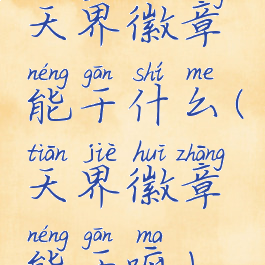 天界徽章
néng gān shí me
能干什么(
tiān jiè huī zhāng
天界徽章
néng gān ma
能干嘛)